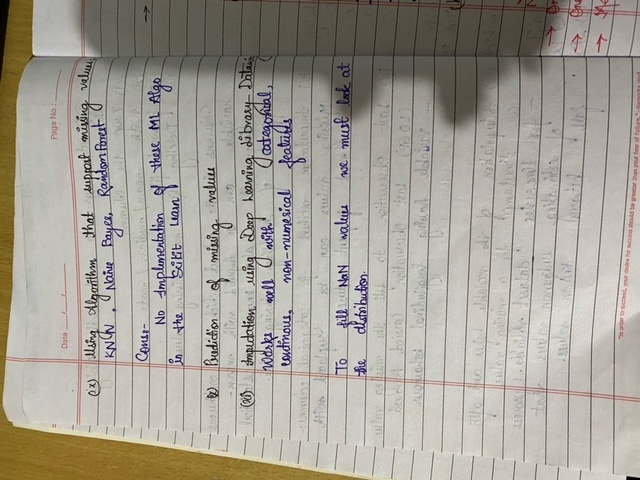 Date __/__/__
Page No.:
(ix) Using Algorithm that support missing values:
KNN, Naive Bayes, Random Forest
Cons:-
No Implementation of these ML Algo
in the Scikit Learn
(x) Prediction of missing values
(xi) Imputation using Deep Learning Library - Datawig
Works well with categorical,
continous, non-numerical features
To fill NaN values we must look at
the distribution.
"In order to succeed, your desire for success should be greater than your fear of failure."
→
→ On
→ One
→ Me